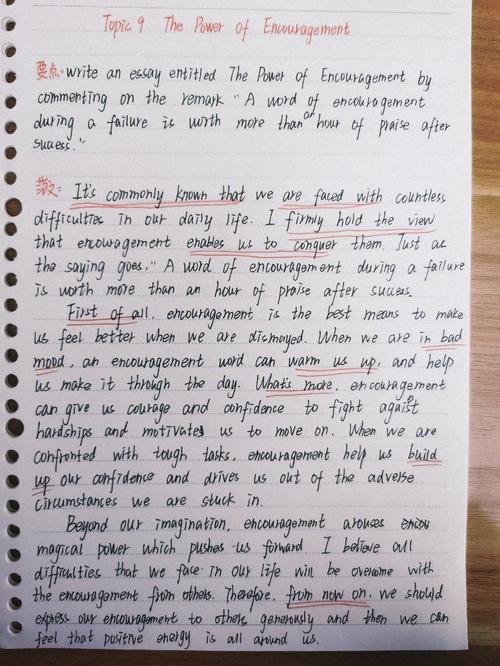 Topic 9 The Power of Encouragement
要点: write an essay entitled The Power of Encouragement by
commenting on the remark "A word of encouragement
during a failure is worth more than an hour of praise after
success."
It's commonly known that we are faced with countless
difficulties in our daily life. I firmly hold the view
that encouragement enables us to conquer them. Just as
the saying goes, "A word of encouragement during a failure
is worth more than an hour of praise after success.
First of all, encouragement is the best means to make
us feel better when we are dismayed. When we are in bad
mood, an encouragement word can warm us up, and help
us make it through the day. What's more, encouragement
can give us courage and confidence to fight against
hardships and motivates us to move on. When we are
confronted with tough tasks, encouragement help us build
up our confidence and drives us out of the adverse
circumstances we are stuck in.
Beyond our imagination, encouragement arouses
magical power which pushes us forward. I believe all
difficulties that we face in our life will be overcome with
the encouragement from others. Therefore, from now on, we should
express our encouragement to others generously and then we can
feel that positive energy is all around us.